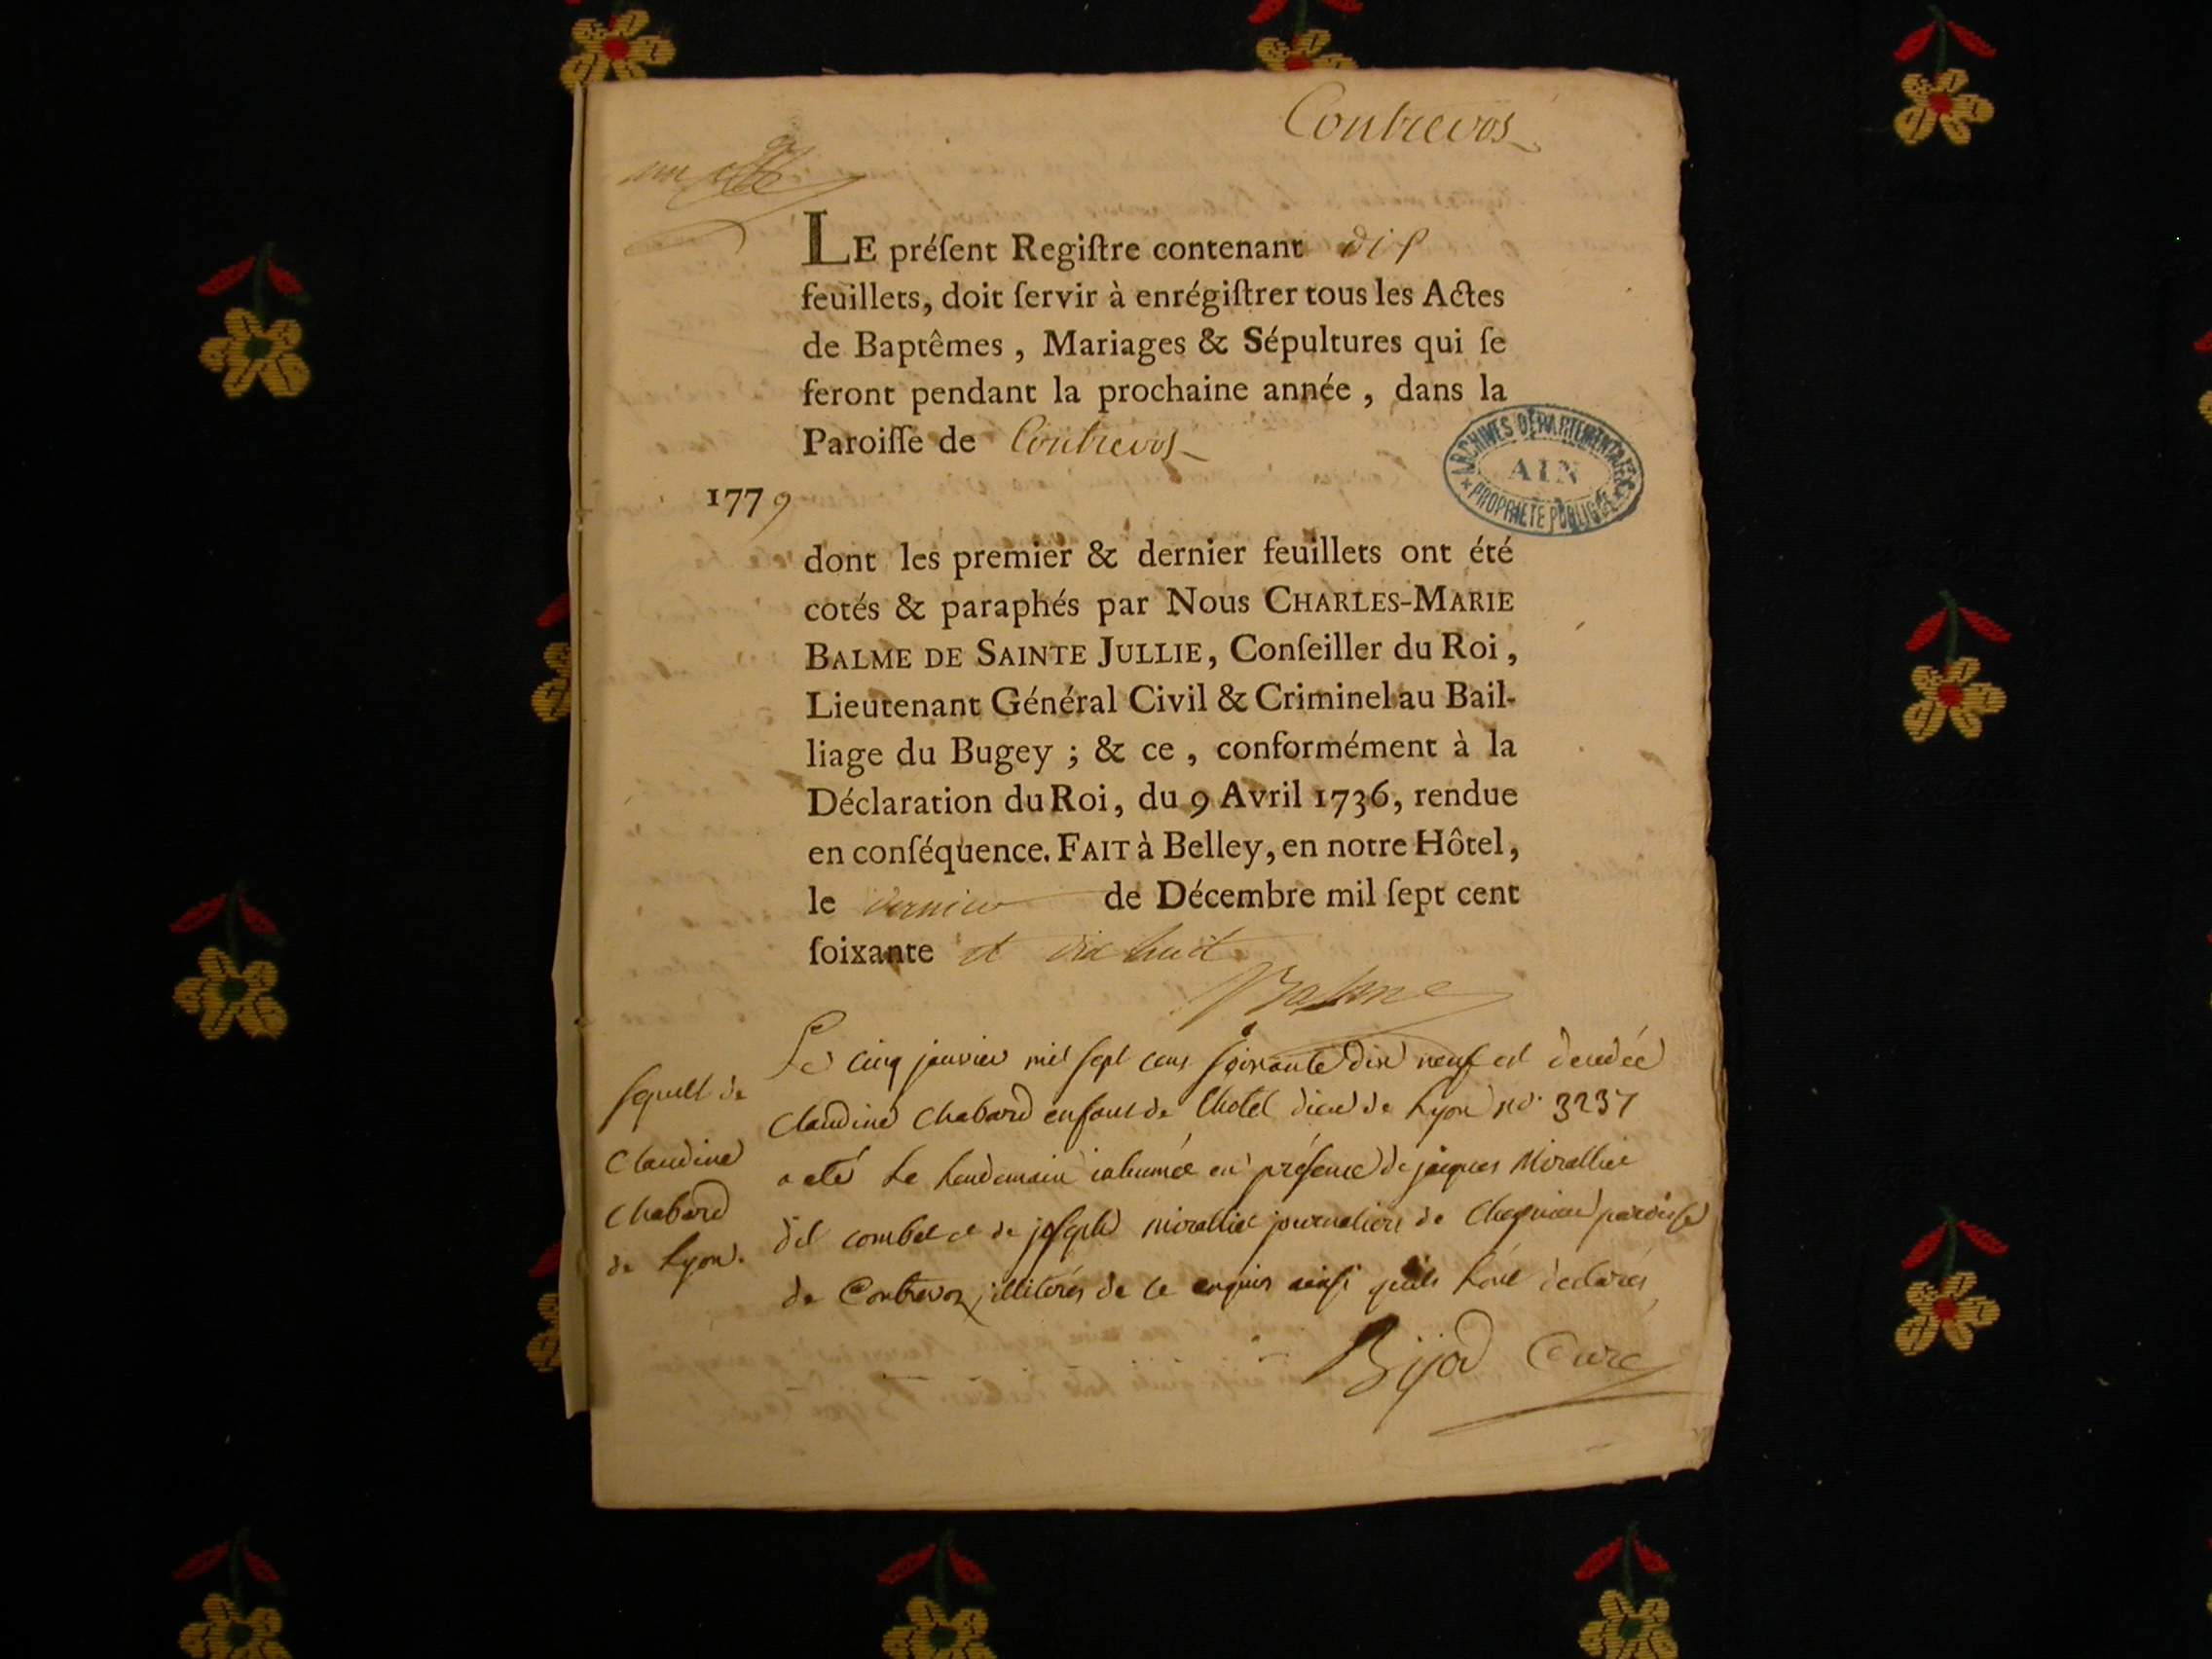 Contrevos
LE préſent Regiſtre contenant dix
feuillets, doit ſervir à enrégiſtrer tous les Actes
de Baptêmes, Mariages & Sépultures qui ſe
feront pendant la prochaine année, dans la
Paroiſſe de Contrevos
ARCHIVES DÉPARTEMENTALES
AIN
PROPRIÉTÉ PUBLIQUE
1779
dont les premier & dernier feuillets ont été
cotés & paraphés par Nous CHARLES-MARIE
BALME DE SAINTE JULLIE, Conſeiller du Roi,
Lieutenant Général Civil & Criminel au Bail-
liage du Bugey ; & ce, conformément à la
Déclaration du Roi, du 9 Avril 1736, rendue
en conſéquence. FAIT à Belley, en notre Hôtel,
le dernier de Décembre mil ſept cent
ſoixante et dix huit
Balme
sepult de
Claudine
Chabard
de Lyon.
Le cinq janvier mil sept cens soixante dix neuf est decedée
Claudine Chabard enfant de lhotel dieu de Lyon no. 3237
a eté le lendemain inhumée en présence de jacques Mirallier
dit combet et de joseph mirallier journaliers de paroisse
de Contrevoz illiterés de ce enquis ainsi quils hont declarés
Bijod Curé